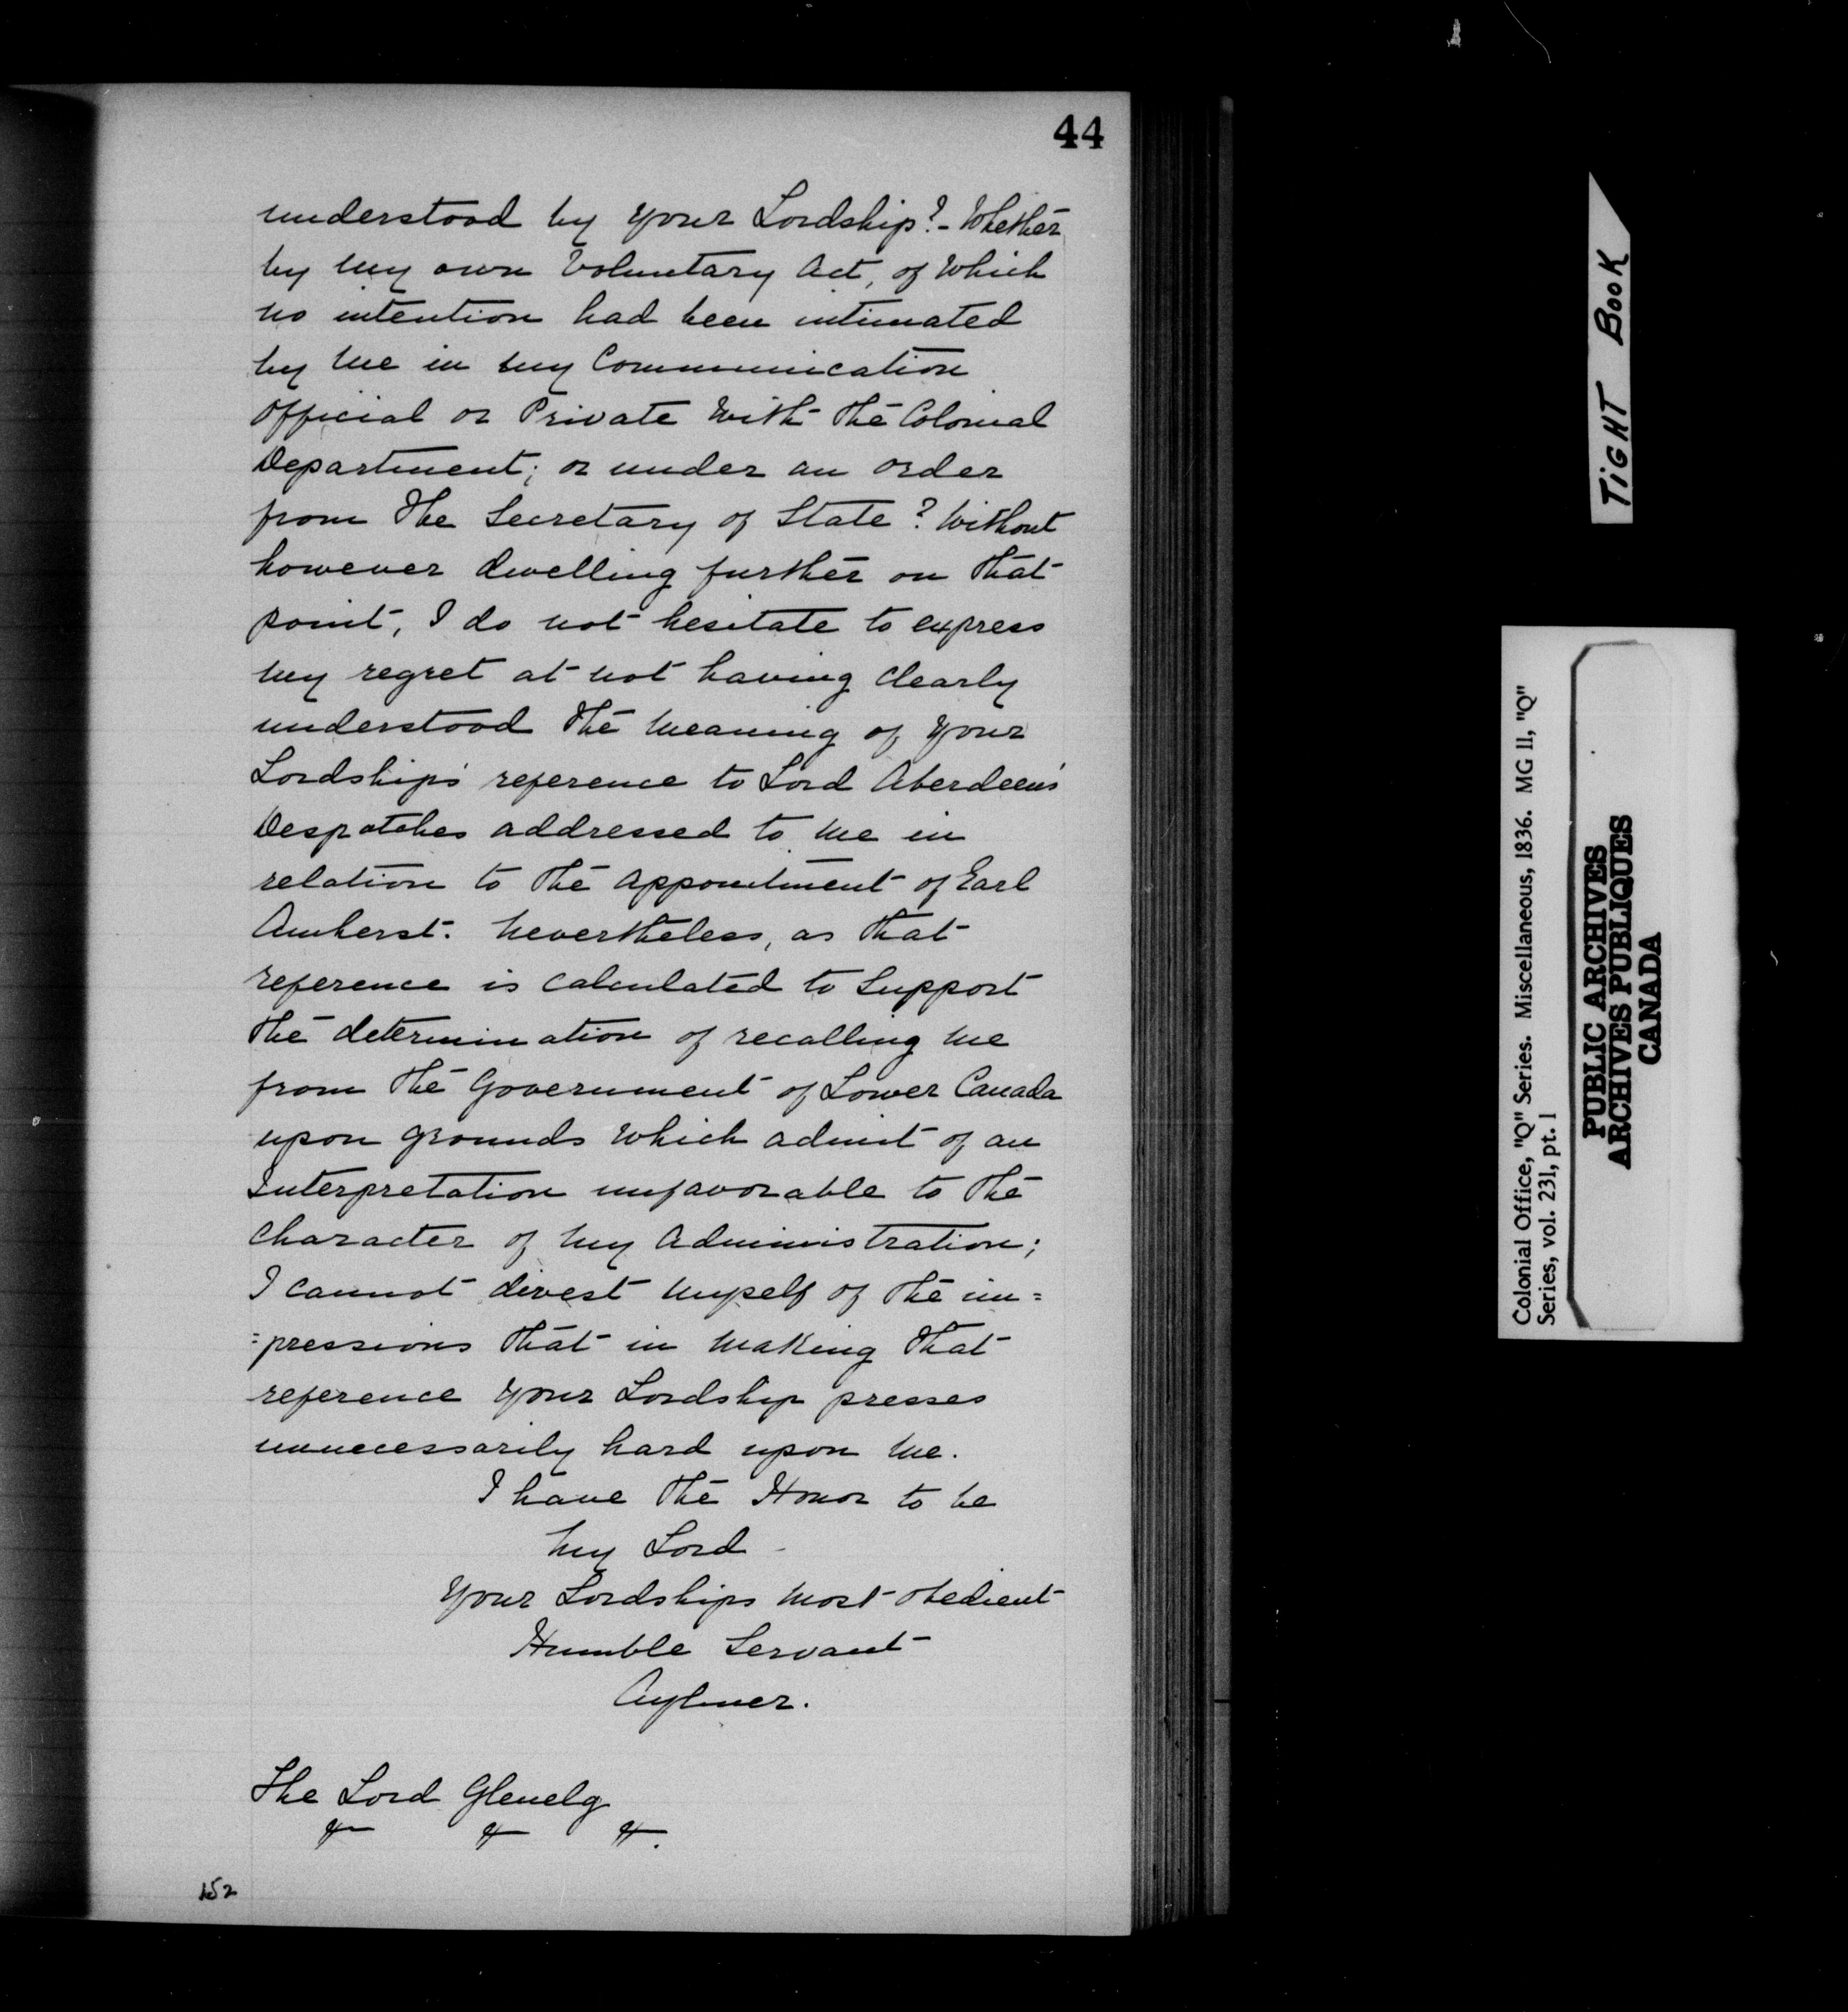 44
understood by your Lordship? - Whether
by my own Voluntary Act, of Which
no intention had been intimated
by me in my Communication
Official or Private With the Colonial
Department; or under an order
from the Secretary of State? Without
however dwelling further on that
point, I do not hesitate to express
my regret at not having clearly
understood the meaning of your
Lordships' reference to Lord Aberdeen's
Despatches addressed to me in
relation to the appointment of Earl
Amherst. Nevertheless, as that
reference is calculated to Support
the determination of recalling me
from the Government of Lower Canada
upon grounds Which admit of an
Interpretation unfavorable to the
Character of my Administration;
I cannot divest myself of the im=
=pressions that in making that
reference your Lordship presses
unnecessarily hard upon me.
I have the Honor to be
My Lord -
Your Lordships most obedient
Humble Servant
Aylmer.
The Lord Glenelg
& & &.
152
TIGHT BOOK
Colonial Office, "Q" Series. Miscellaneous, 1836. MG 11, "Q"
Series, vol. 231, pt. 1
PUBLIC ARCHIVES
ARCHIVES PUBLIQUES
CANADA